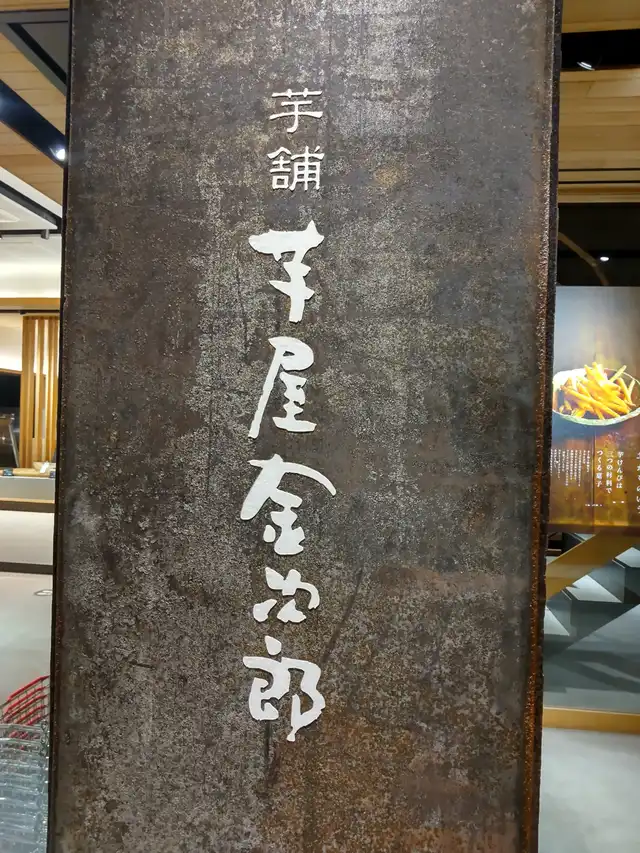 芋舗
芋屋金次郎
芋けんぴは
三つの材料で
つくる菓子